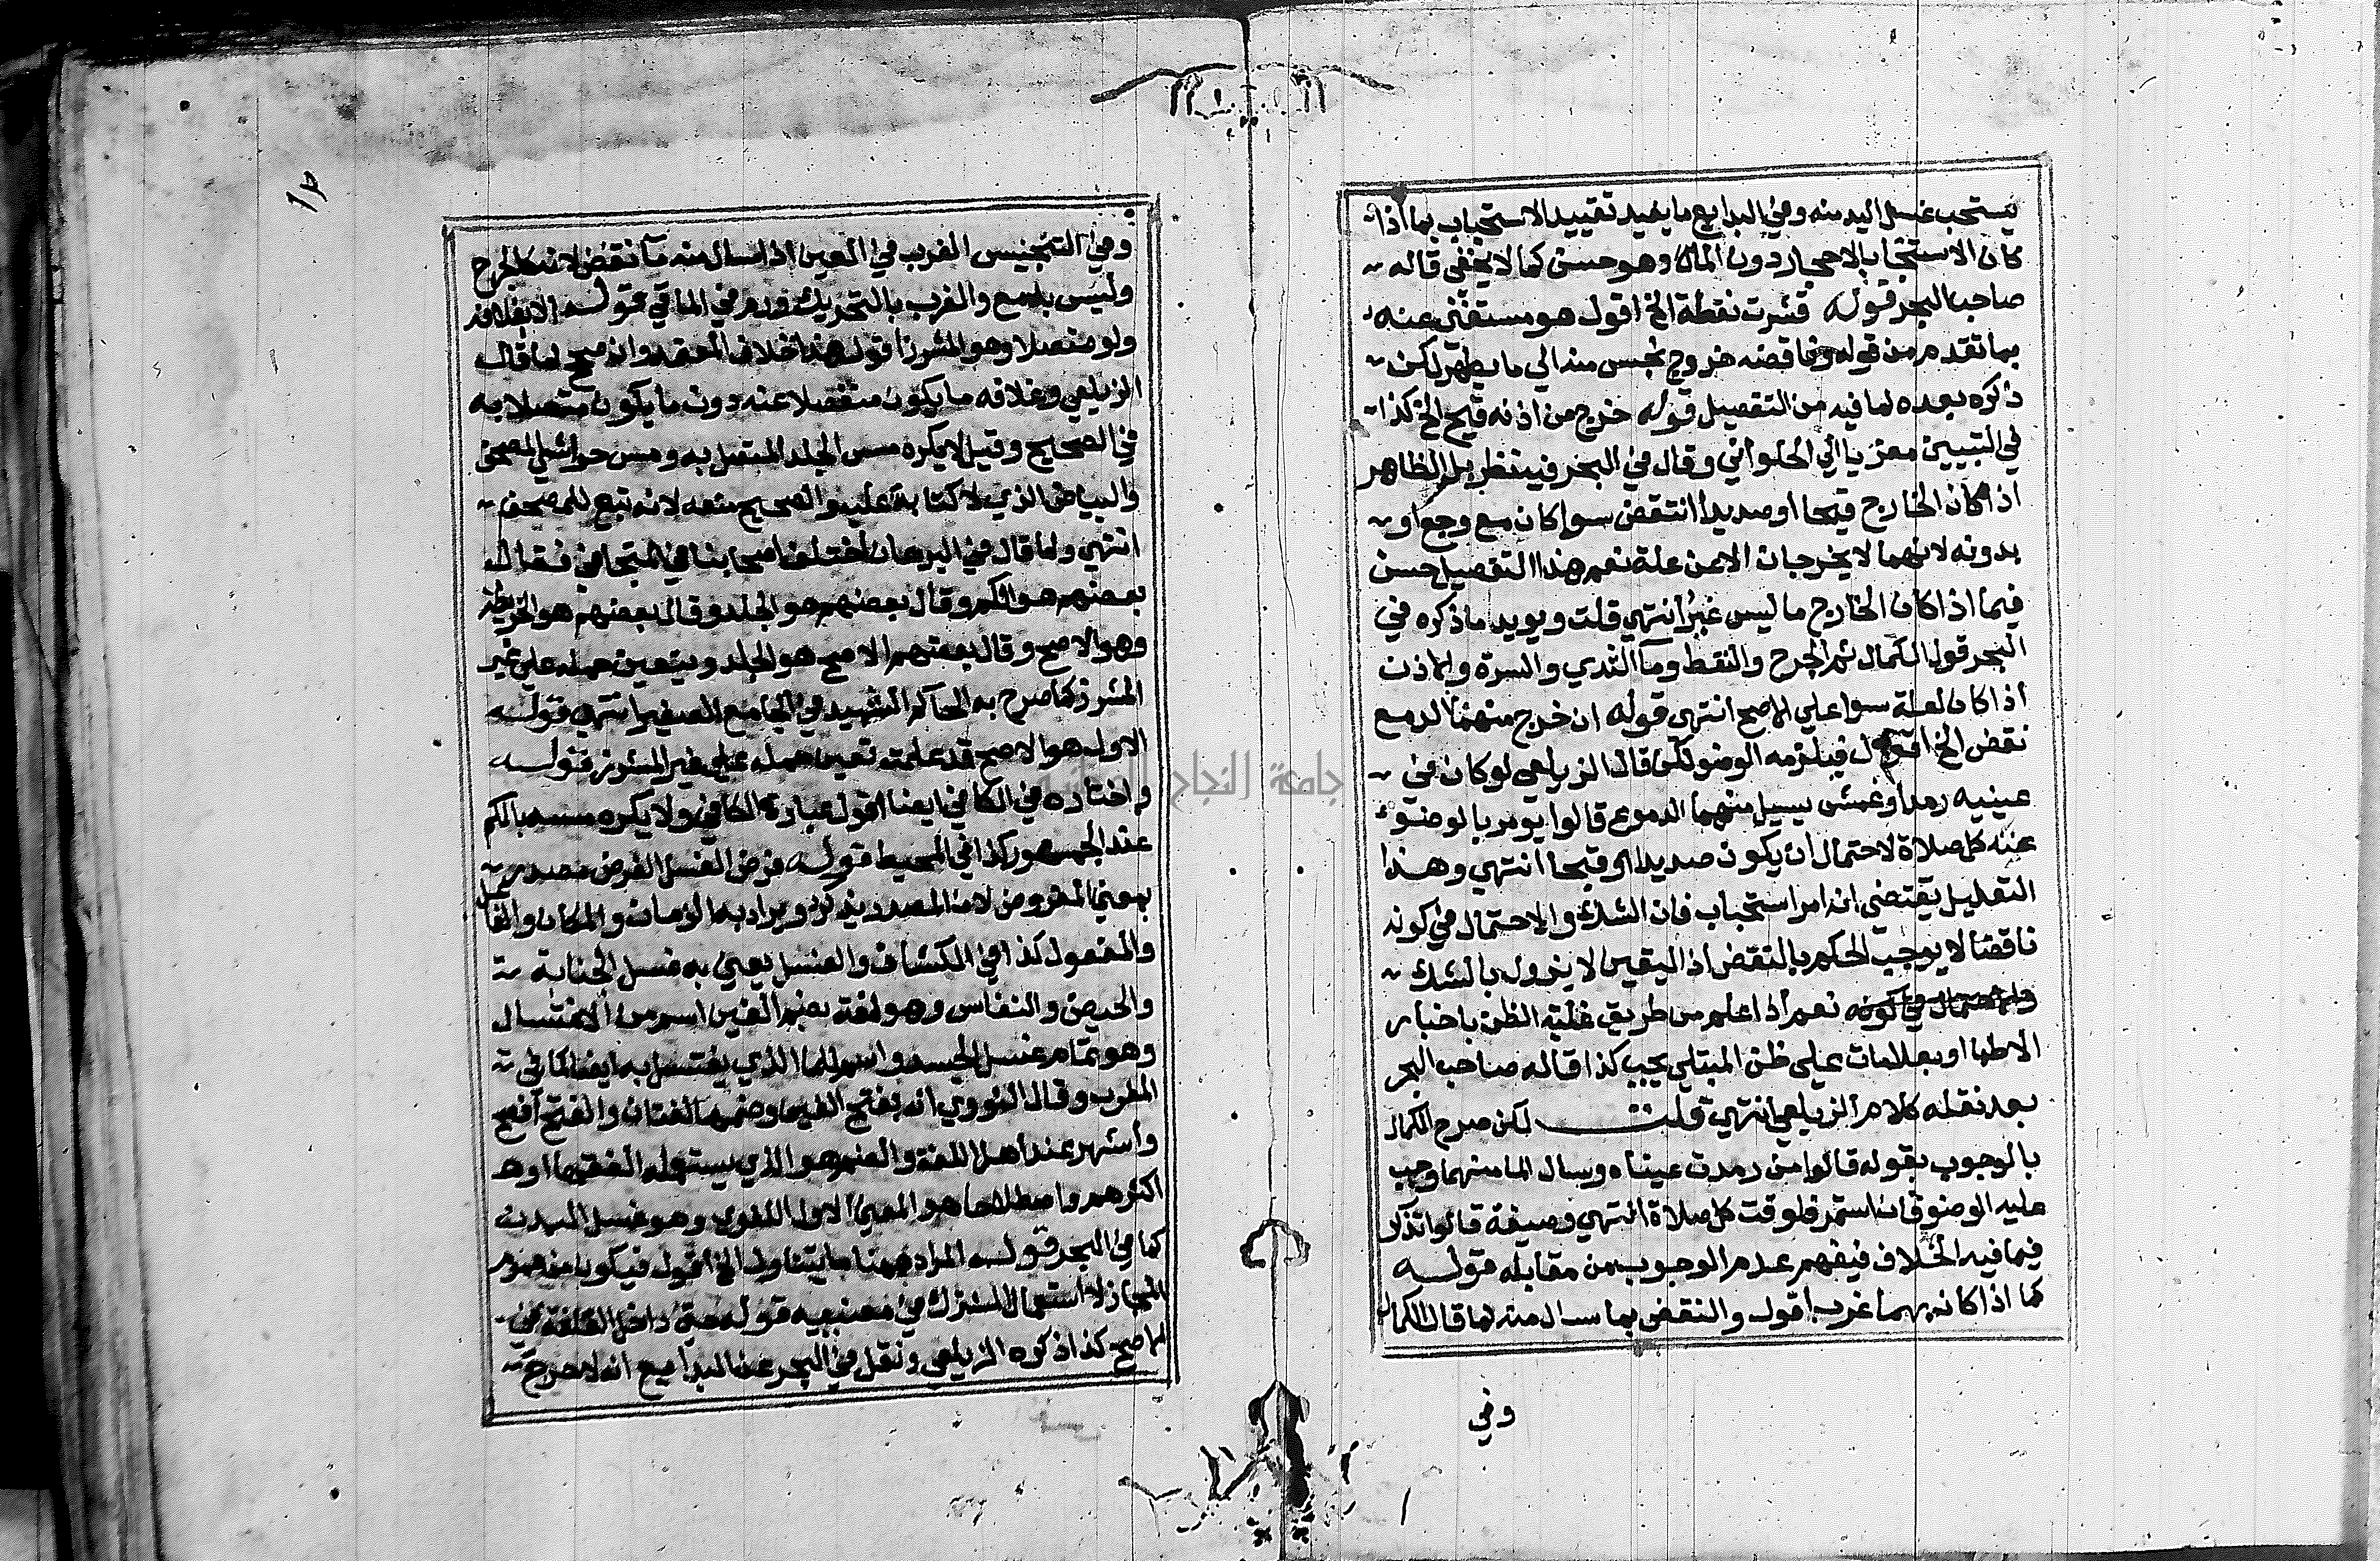 يستحب غسل اليد منه وفي البدايع ما يفيد تقييد الاستحباب بما اذا
كان الاستنجا بالاحجار دون الماء وهو حسن كما لا يخفى قاله
صاحب البحر قوله قشرت نقطة الخ اقول هو مستغني عنه
بما تقدم من قوله وناقضه خروج نجس منه الي ما يطهر لكن
ذكره بعده لما فيه من التفصيل قوله خرج من اذنه قيح الخ كذا
في التبيين معزيا الي الحلواني وقال في البحر فيه نظر بل الظاهر
اذا كان الخارج قيحا او صديدا انتقض سوا كان مع وجع او
بدونه لانهما لا يخرجان الا عن علة نعم هذا التفصيل حسن
فيما اذا كان الخارج ما ليس غير انتهي قلت ويويد ما ذكره في
البحر قول الكمال ثم الجرح والنفط وما الثدي والسرة والاذن
اذا كان لعلة سوا علي الاصح انتهي قوله ان خرج منهما الدمع
نقض الخ اقول فيلزمه الوضو لكن قال الزيلعي لو كان في
عينيه رمد او عمش يسيل منهما الدموع قالوا يومر بالوضوء
عند كل صلاة لاحتمال ان يكون صديدا او قيحا انتهي وهذا
التعليل يقتضي انه امر استحباب فان الشك والاحتمال في كونه
ناقضا لا يوجب الحكم بالنقض اذ اليقين لا يزول بالشك
نعم اذا علم من طريق غلبة الظن باخبار
الاطبا او بعلامات علي ظن المبتلي يجب كذا قاله صاحب البحر
بعد نقله كلام الزيلعي انتهي قلت لكن صرح الكمال
بالوجوب بقوله قالوا من رمدت عيناه وسال الما منهما وجب
عليه الوضو فان استمر فلوقت كل صلاة انتهي وصيغة قالوا تذكر
فيما فيه الخلاف فيفهم عدم الوجوب من مقابله قوله
كما اذا كان بهما غرب اقول والنقض بما سال منه لما قال الكمال
وفي
١٢
وفي التجنيس الغرب في العين اذا سال منه ما نقض لانه كالجرح
وليس بدمع والغرب بالتحريك ورم في الماقي قوله الا بغلافه
ولو متصلا وهو المشرز اقول هذا خلاف المعتمد وان صحح لما قال
الزيلعي وغلافه ما يكون منفصلا عنه دون ما يكون متصلا به
في الصحيح وقيل لا يكره مس الجلد المتصل به ومس حواشي المصحف
والبياض الذي لا كتابة عليه والصحيح منعه لانه تبع للمصحف
انتهي ولما قال في البرهان اختلف اصحابنا في المتجافي فقال
بعضهم هو الكم وقال بعضهم هو الجلد وقال بعضهم هو الخريطة
وهو الاصح وقال بعضهم الاصح هو الجلد ويتعين حمله علي غير
المشرز كما صرح به الحاكم الشهيد في الجامع الصغير انتهي قوله
الاول هو الاصح قد علمت تعين حمله علي غير المشرز قوله
واختاره في الكافي ايضا اقول عبارة الكافي ولا يكره مسه بالكم
عند الجمهور كذا في المحيط قوله فرض الغسل الفرض مصدر
بمعني المفروض لان المصدر يذكر ويراد به الزمان والمكان والفاعل
والمفعول كذا في الكشاف والغسل يعني به غسل الجنابة
والحيض والنفاس وهو لغة بضم الغين اسم من الاغتسال
وهو تمام غسل الجسد واسم للما الذي يغتسل به ايضا كما في
المغرب وقال النووي انه بفتح الغين وضمها لغتان والفتح افصح
واشهر عند اهل اللغة والضم هو الذي يستعمله الفقها او
اكثرهم واصطلاحا هو المعني الاول اللغوي وهو غسل البدن
كما في البحر قوله المراد ههنا ما يتناول الخ اقول فيكون من عموم
المجاز لا استعمال المشترك في معنييه قوله حتي داخل القلفة في
الاصح كذا ذكره الزيلعي ونقل في البحر عن البدايع انه لا حرج
جامعة النجاح الوطنية